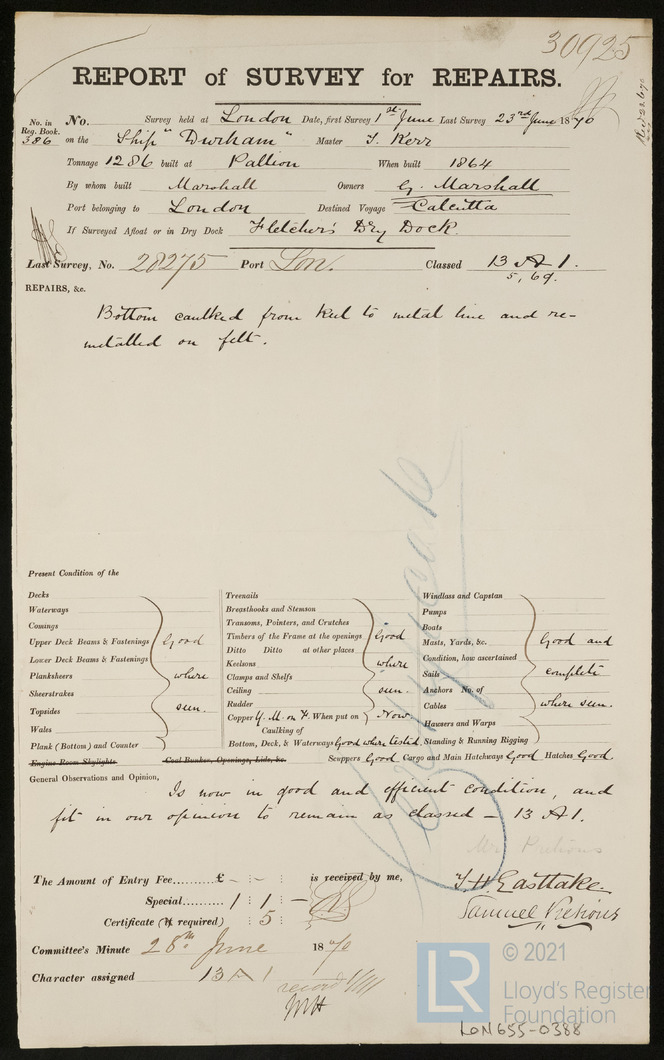 30925
REPORT of SURVEY for REPAIRS.
No. in Reg. Book. No. Survey held at London Date, first Survey 1st June Last Survey 23rd June 1870
386 on the Ship "Durham" Master T. Kerr
Tonnage 1286 built at Pallion When built 1864
By whom built Marshall Owners G. Marshall
Port belonging to London Destined Voyage Calcutta
If Surveyed Afloat or in Dry Dock Fletcher's Dry Dock.
Last Survey, No. 28275 Port Lon. Classed 13 A 1.
5, 69.
REPAIRS, &c.
Bottom caulked from keel to metal line and re-
metalled on felt.
Present Condition of the
Decks
Waterways
Comings
Upper Deck Beams & Fastenings
Lower Deck Beams & Fastenings
Planksheers
Sheerstrakes
Topsides
Wales
Plank (Bottom) and Counter
Good where seen.
Treenails
Breasthooks and Stemson
Transoms, Pointers, and Crutches
Timbers of the Frame at the openings
Ditto Ditto at other places
Keelsons
Clamps and Shelfs
Ceiling
Rudder
Good where seen.
Copper Y. M. on F. When put on Now.
Caulking of
Bottom, Deck, & Waterways Good where tested.
Windlass and Capstan
Pumps
Boats
Masts, Yards, &c.
Condition, how ascertained
Sails
Anchors No. of
Cables
Hawsers and Warps
Standing & Running Rigging
Good and complete where seen.
Engine Room Skylights Coal Bunker, Openings, Lids, &c. Scuppers Good Cargo and Main Hatchways Good Hatches Good.
General Observations and Opinion, Is now in good and efficient condition, and
fit in our opinion to remain as classed – 13 A 1.
The Amount of Entry Fee......... £ - : - : is received by me,
Special......... 1 : 1 : –
Certificate (if required) : 5 :
T. H. Eastlake
Samuel Pretious
Committee's Minute 28th June 1870
Character assigned 13 A 1
© 2021
LR
Lloyd's Register
Foundation
LON655-0388